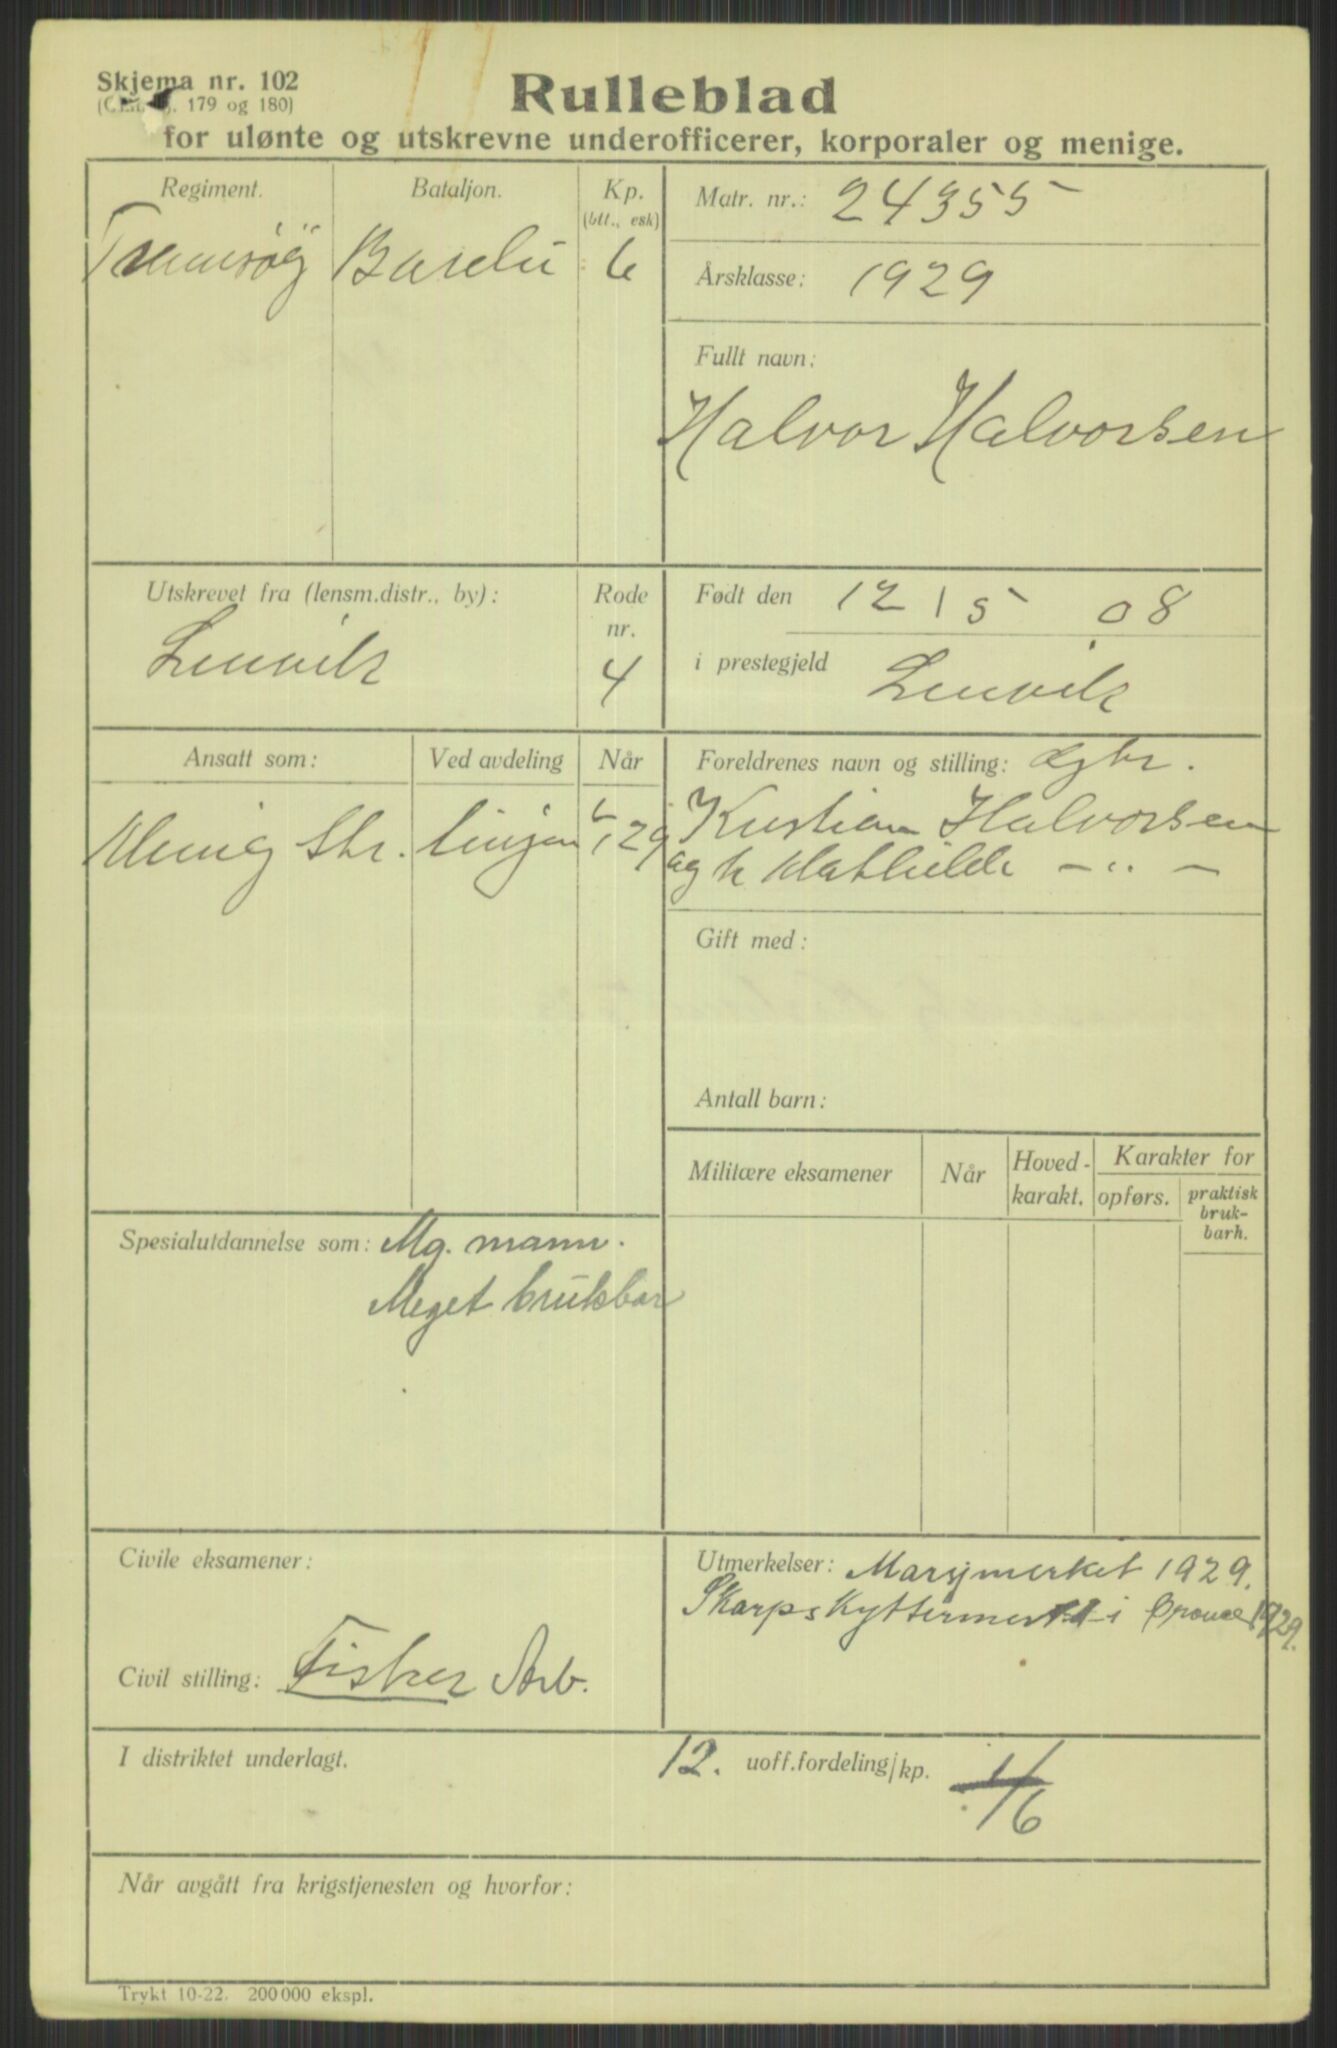 Skjema nr. 102
179 og 180)
Rulleblad
for ulønte og utskrevne underofficerer, korporaler og menige.
Regiment.
Bataljon.
Kp.
(btt., esk)
Bardu
6
Matr. nr.: 24355
Årsklasse: 1929
Fullt navn:
Halvor Halvorsen
Utskrevet fra (lensm.distr., by):
Lenvik
Rode
nr.
4
Født den 12 / 5 08
i prestegjeld Lenvik
Ansatt som:
Ved avdeling
Når
Menig Str. linjen 29
Foreldrenes navn og stilling:
Kristian Halvorsen
og h Mathilde — „ —
Gift med:
Antall barn:
Militære eksamener
Når
Hoved-
karakt.
Karakter for
opførs.
praktisk
bruk-
barh.
Spesialutdannelse som: Mg. mann.
Meget brukbar
Civile eksamener:
Civil stilling: Fisker Arb.
Utmerkelser: Marsjmerket 1929.
Skarpskyttermerket i bronce 1929.
I distriktet underlagt.
12. uoff.fordeling/kp. 1/6
Når avgått fra krigstjenesten og hvorfor:
Trykt 10-22. 200 000 ekspl.